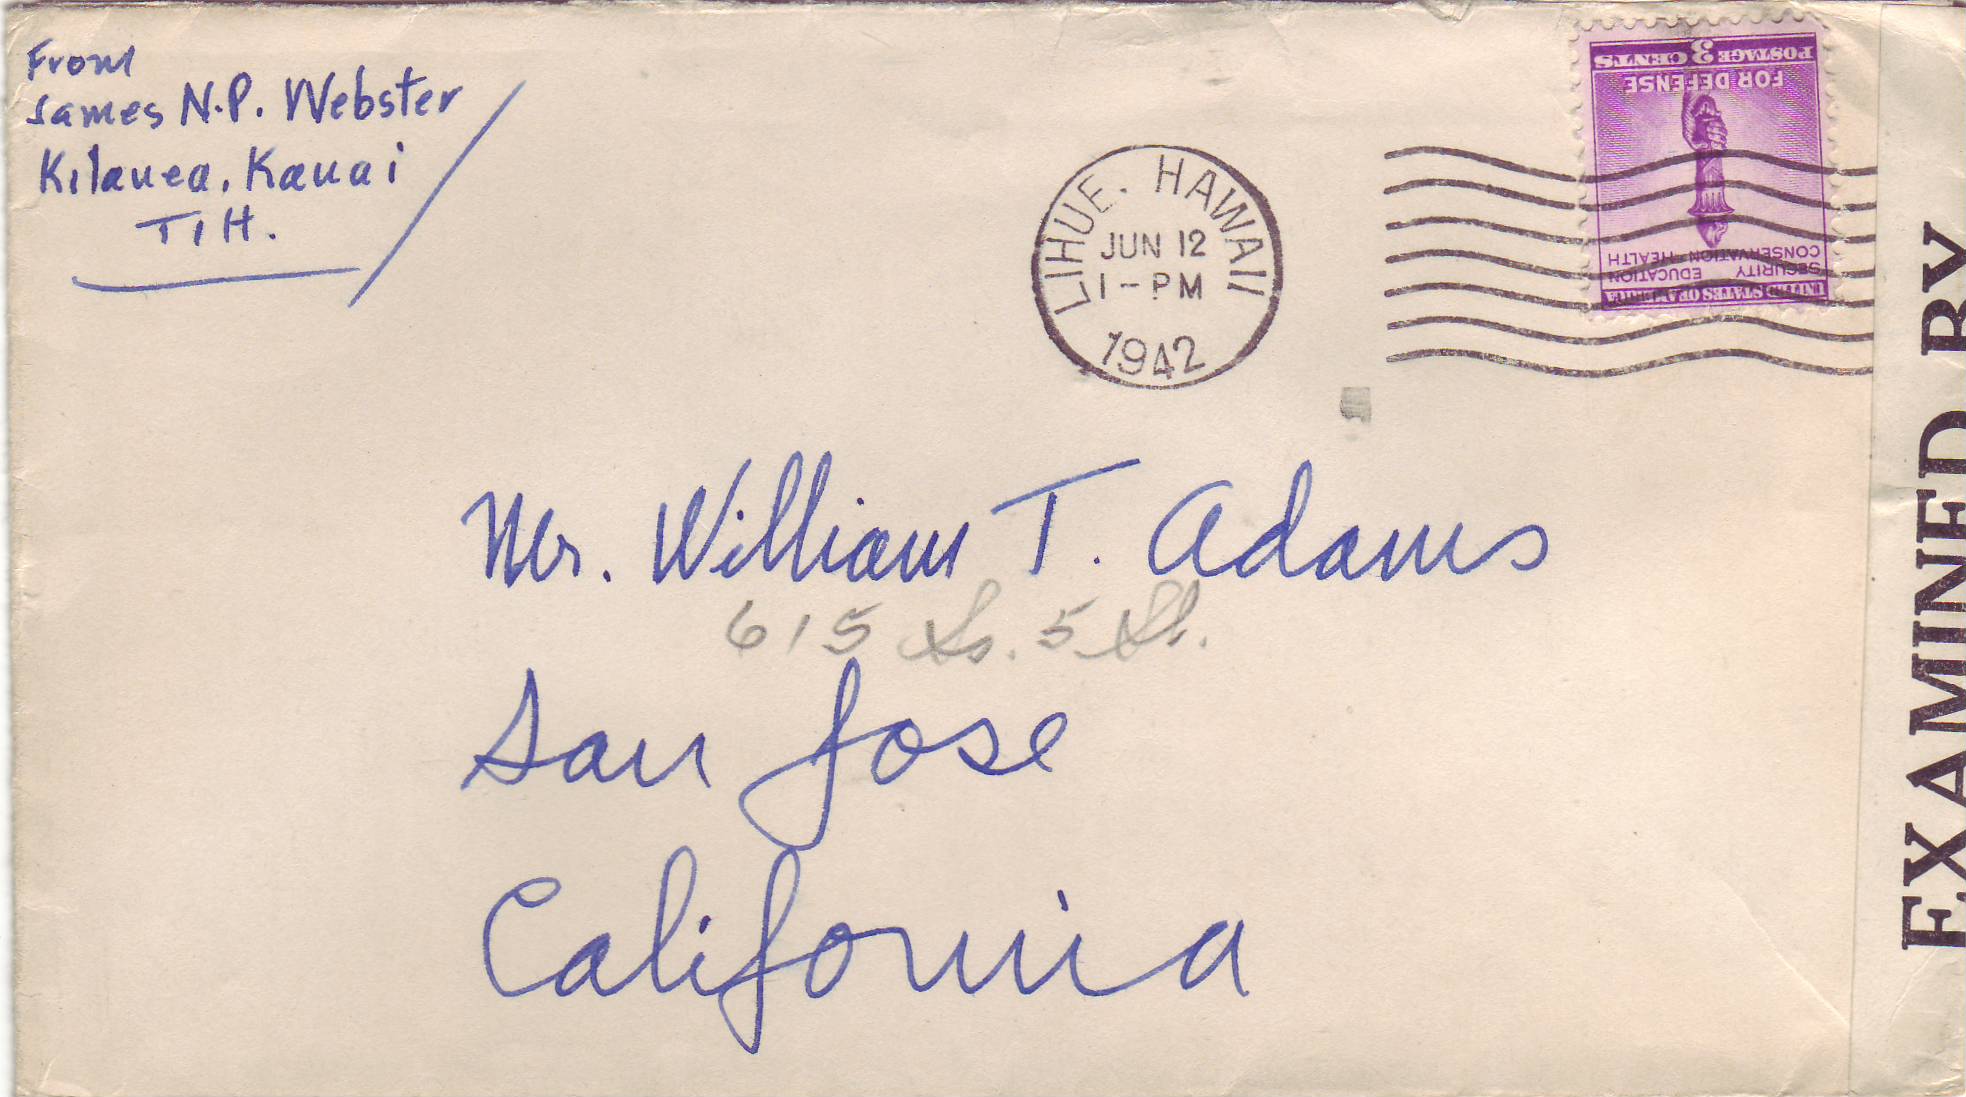 From
James N.P. Webster
Kilauea, Kauai
T I H.
LIHUE. HAWAII
JUN 12
1-PM
1942
UNITED STATES OF AMERICA
SECURITY EDUCATION
CONSERVATION HEALTH
FOR DEFENSE
POSTAGE 3 CENTS
Mr. William T. Adams
615 So. 5 St.
San Jose
California
EXAMINED BY